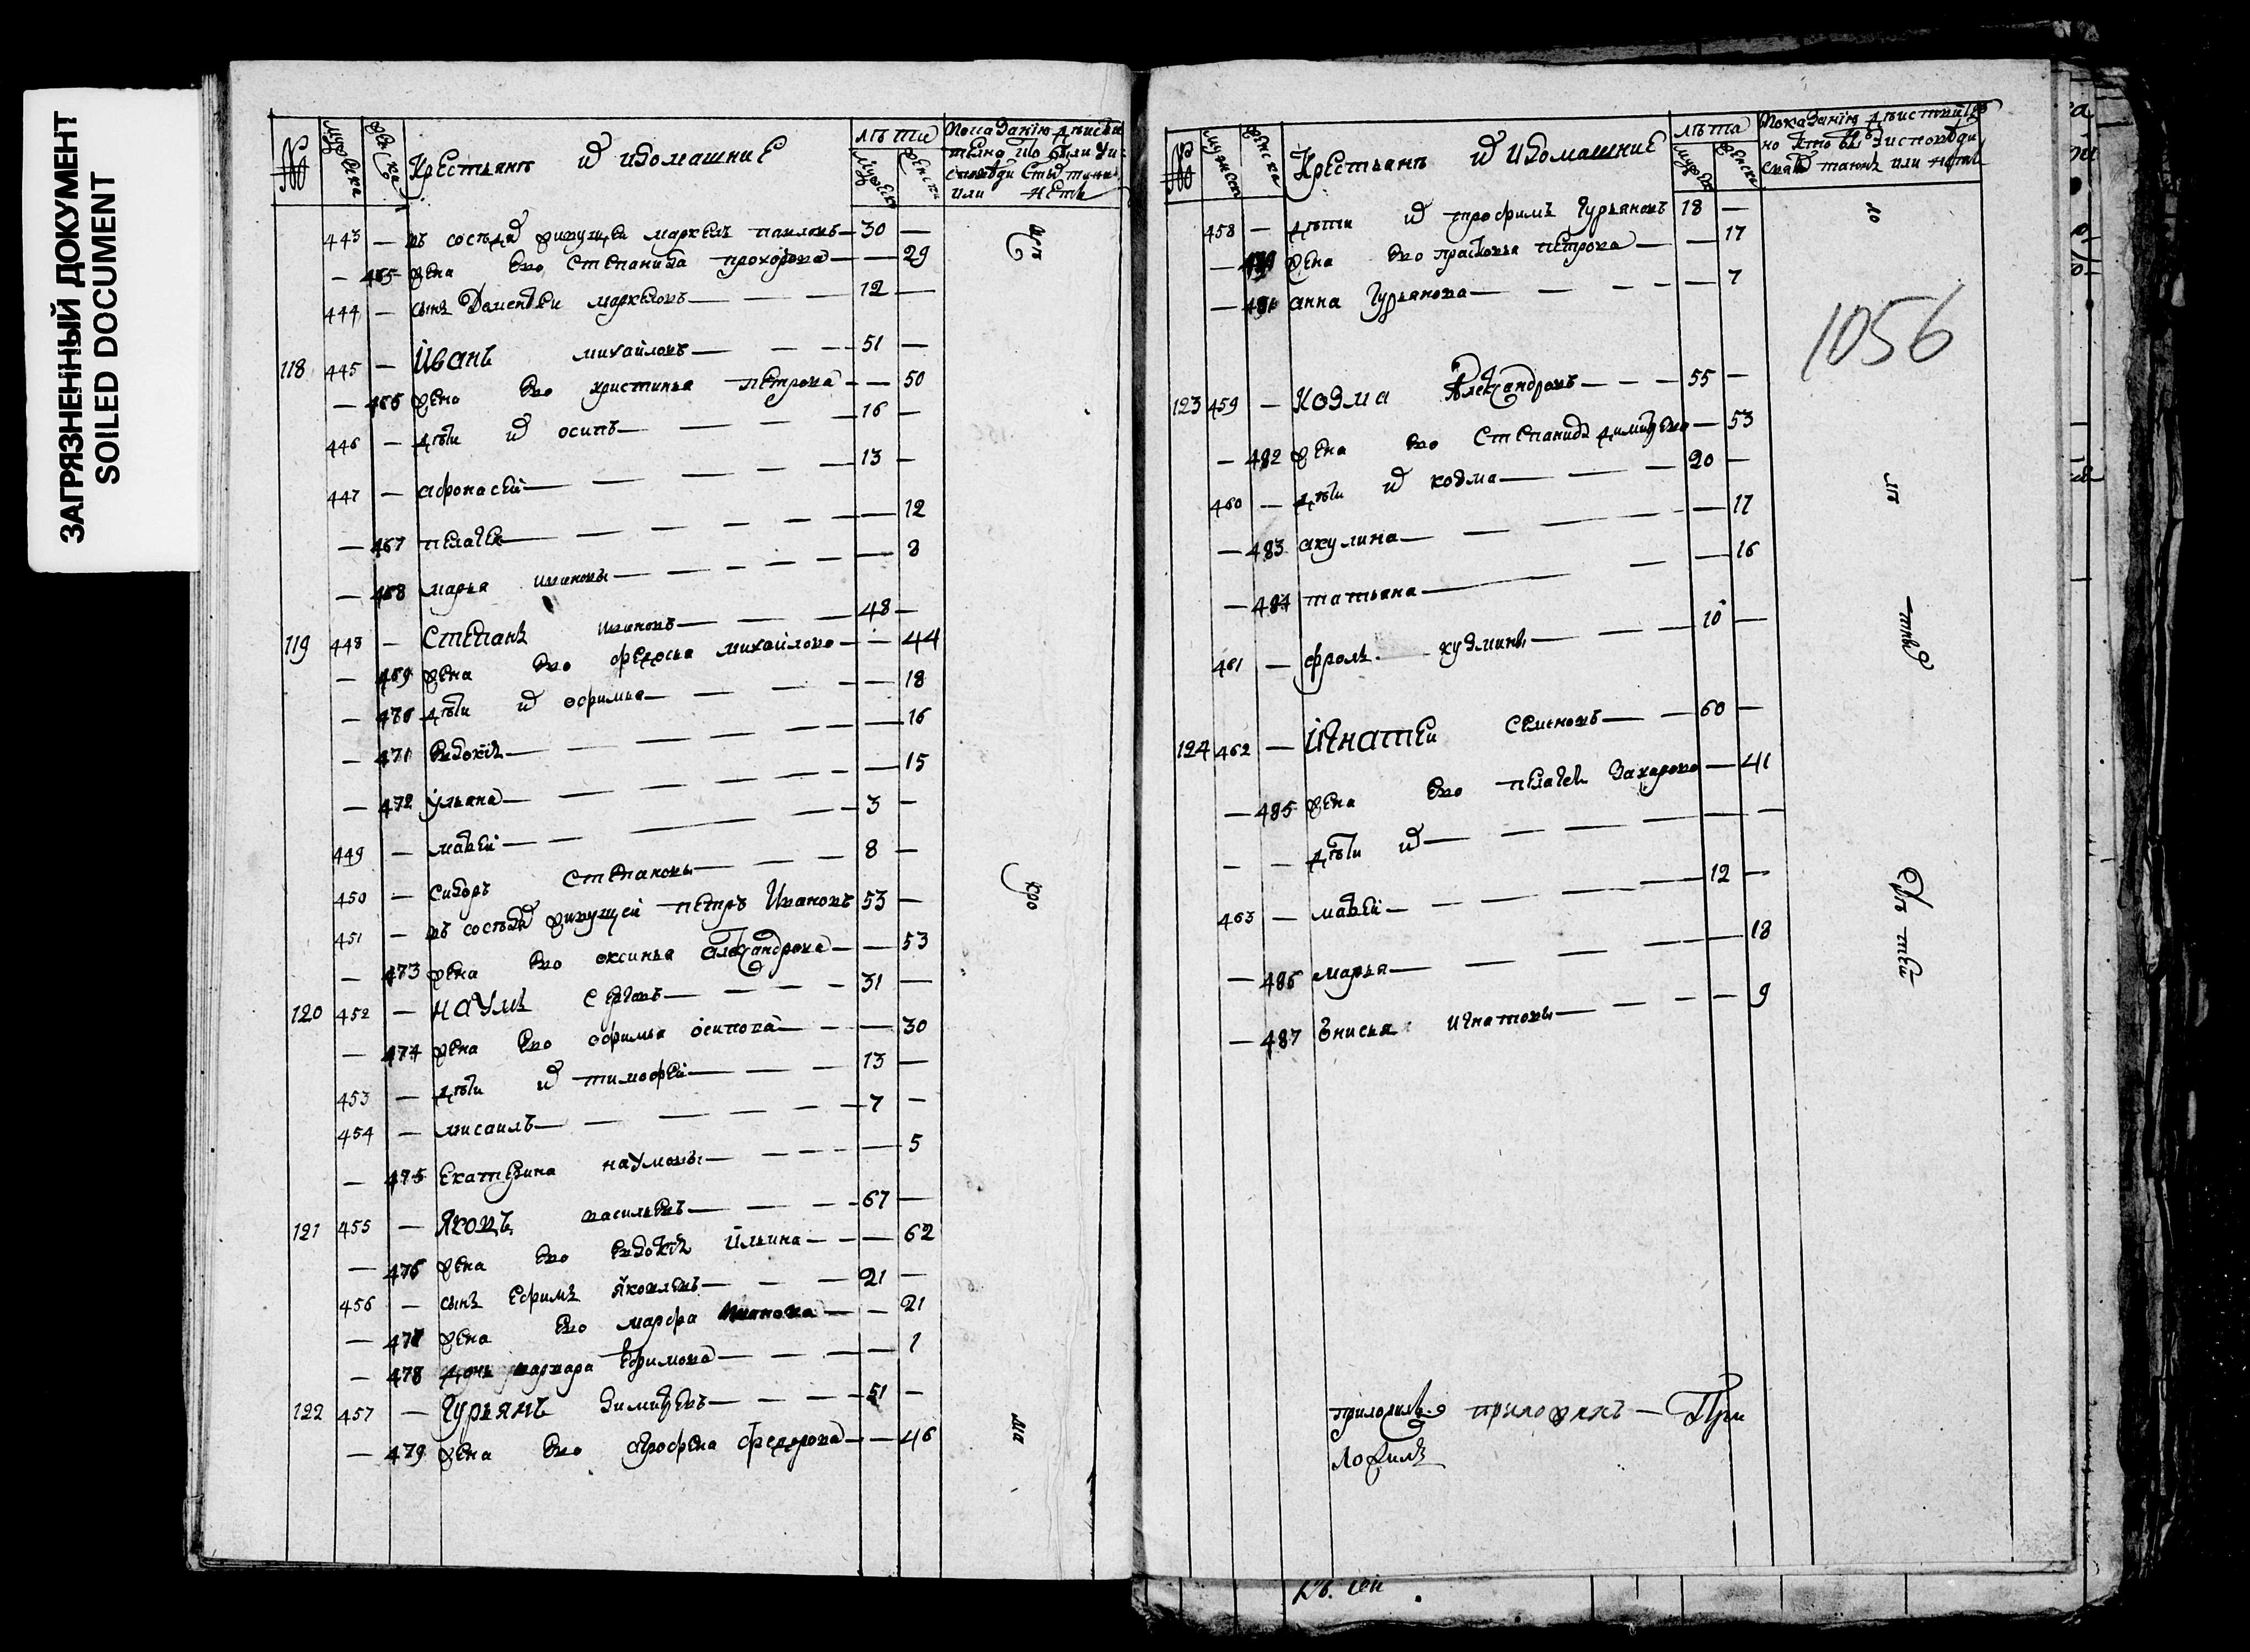 ЗАГРЯЗНЕННЫЙ ДОКУМЕНТ
SOILED DOCUMENT
№ мужеска женска Крестьянъ и домашние лѣта
мужеск женски
или нетъ
443 — въ соседи живущеи маркелъ павловъ — 30 —
— 465 жена ево степанида прохорова — — 29
444 — сынъ маркеловъ — 12 —
118 445 — Иванъ михайловъ — 51 —
— 466 жена ево христинья петрова — — 50
446 — дѣти их осипъ — 16 —
447 — афонасей — 13 —
— 467 пелагея — — 12
— 468 марья ивановы — — 8
119 448 — Степанъ ивановъ — 48 —
— 469 жена ево федосья михайлова — — 44
— 470 дѣти их офимья — — 18
— 471 евдокия — — 16
— 472 ульяна — — 15
449 — матвей — 3 —
450 — сидоръ степановы — 8 —
451 — въ соседи живущей петръ Ивановъ 53 —
— 473 жена ево оксинья александрова — — 53
120 452 — Наумъ сергевъ — 31 —
— 474 жена ево офимья осипова — — 30
453 — дѣти их тимофей — 13 —
454 — мисаилъ — 7 —
— 475 Екатерина наумовы — — 5
121 455 — Яковъ васильевъ — 67 —
— 476 жена ево евдокия Ильина — — 62
456 — сынъ ефимъ яковлевъ — 21 —
— 477 жена ево марфа ивановa — — 21
— 478 дочь варвара Ефимова — — 1
122 457 — Гурьянъ димитревъ — 51 —
— 479 жена ево огрофена федорова — — 46
№ мужеска женска Крестьянъ и домашние лѣта
мужеск женски
или нетъ
458 — дѣти их трофимъ гурьяновъ 18 —
— 480 жена ево прасковья петрова — — 17
— 481 анна гурьянова — — 7
1056
123 459 — Козма Александровъ — 55 —
— 482 жена ево степанида димитрева — 53
460 — дѣти их козма — 20 —
— 483 акулина — — 17
— 484 татьяна — — 16
461 — фролъ кузмины — 10 —
124 462 — Игнатеи семеновъ — 60 —
— 485 жена ево пелагея захарова — 41
— — дѣти их — — —
463 — матвей — 12 —
— 486 марья — — 18
— 487 Энисья игнатовы — — 9
приложилъ приложилъ — При
ложилъ